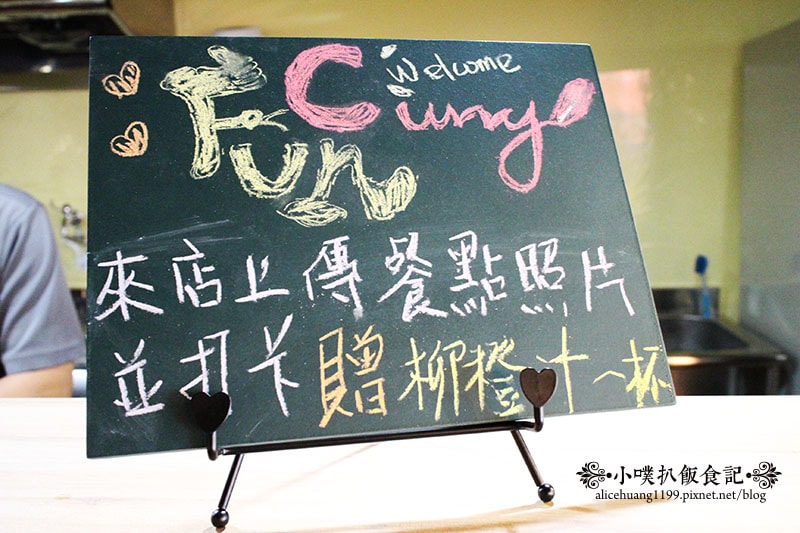 Welcome
Fun Curry
Fun
來店上傳餐點照片
並打卡贈柳橙汁一杯
小噗扒飯食記
alicehuang1199.pixnet.net/blog